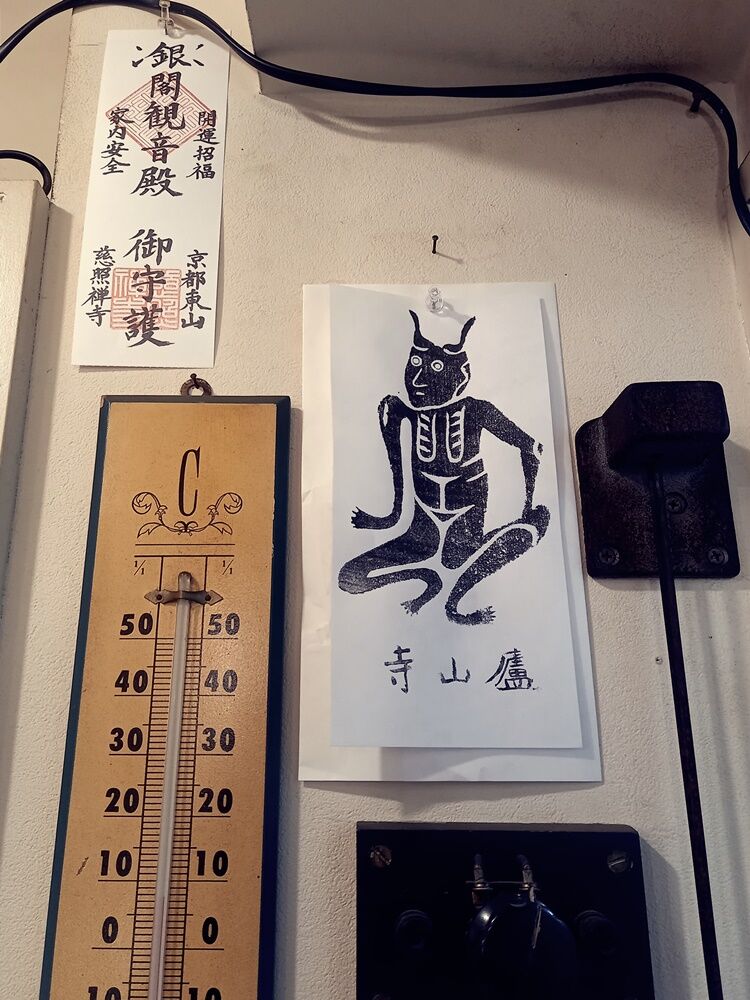 開運招福
銀閣観音殿
家内安全
京都東山
御守護
慈照禅寺
廬山寺
C
1/1 1/1
50 50
40 40
30 30
20 20
10 10
0 0
10 10